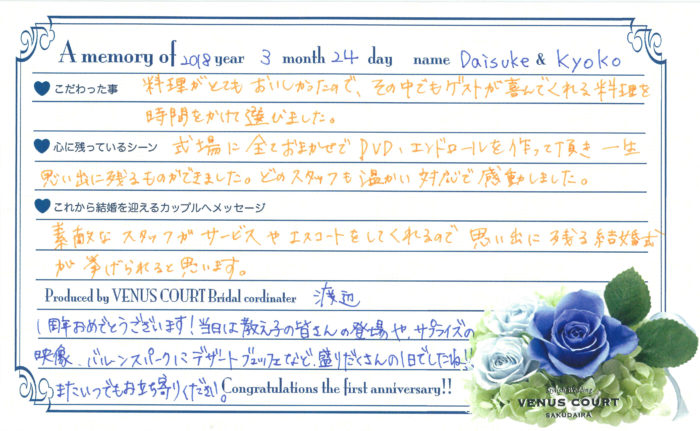 A memory of 2018 year 3 month 24 day name Daisuke & Kyoko
こだわった事 料理がとてもおいしかったので、その中でもゲストが喜んでくれる料理を
時間をかけて選びました。
心に残っているシーン 式場に全ておまかせでDVD、エンドロールを作って頂き一生
思い出に残るものができました。どのスタッフも温かい対応で感動しました。
これから結婚を迎えるカップルへメッセージ
素敵なスタッフがサービスやエスコートをしてくれるので思い出に残る結婚式
が挙げられると思います。
Produced by VENUS COURT Bridal cordinater 渡辺
1周年おめでとうございます!当日は教え子の皆さんの登場や、サプライズの
映像、バルーンスパークにデザートブッフェなど、盛りだくさんの1日でしたね!!
またいつでもお立ち寄りください。Congratulations the first anniversary!!
VENUS COURT
SAKUDAIRA